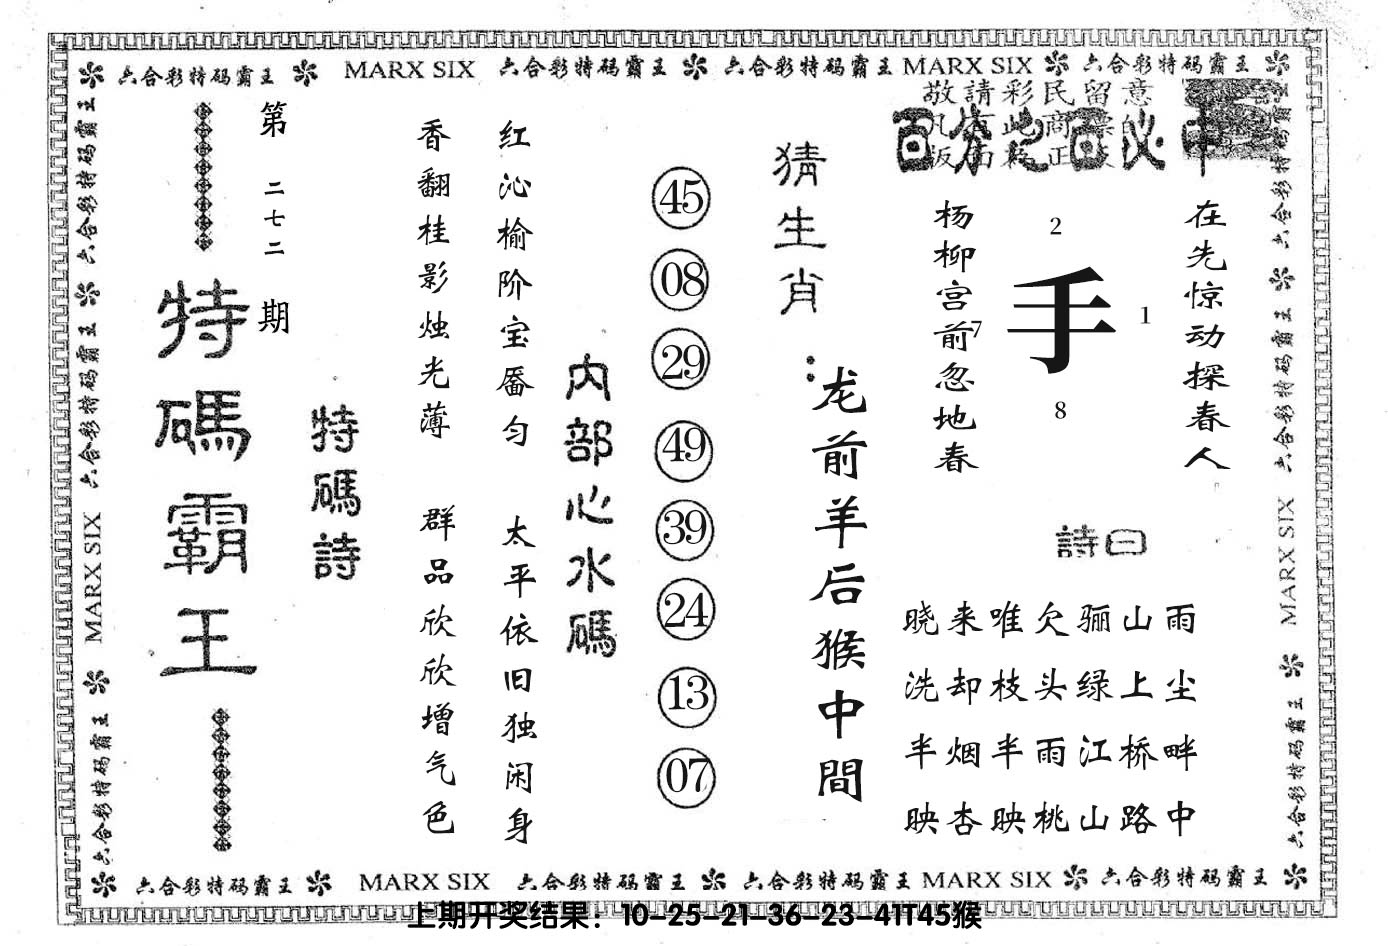 六合彩特码霸王 MARX SIX 六合彩特码霸王 六合彩特码霸王 MARX SIX 六合彩特码霸王
敬請彩民留意
百分之百必中
在先惊动探春人
2
手
7
1
8
杨柳宫前忽地春
詩曰
晓来唯欠骊山雨
洗却枝头绿上尘
半烟半雨江桥畔
映杏映桃山路中
猜生肖：
龙前羊后猴中間
45
08
29
49
39
24
13
07
内部心水碼
红沁榆阶宝靥匀 太平依旧独闲身
香翻桂影烛光薄 群品欣欣增气色
特碼詩
第二七二期
特碼霸王
六合彩特码霸王 六合彩特码霸王 MARX SIX 六合彩特码霸王
六合彩特码霸王 六合彩特码霸王 MARX SIX 六合彩特码霸王
六合彩特码霸王 MARX SIX 六合彩特码霸王 六合彩特码霸王 MARX SIX 六合彩特码霸王
上期开奖结果：10-25-21-36-23-41T45猴